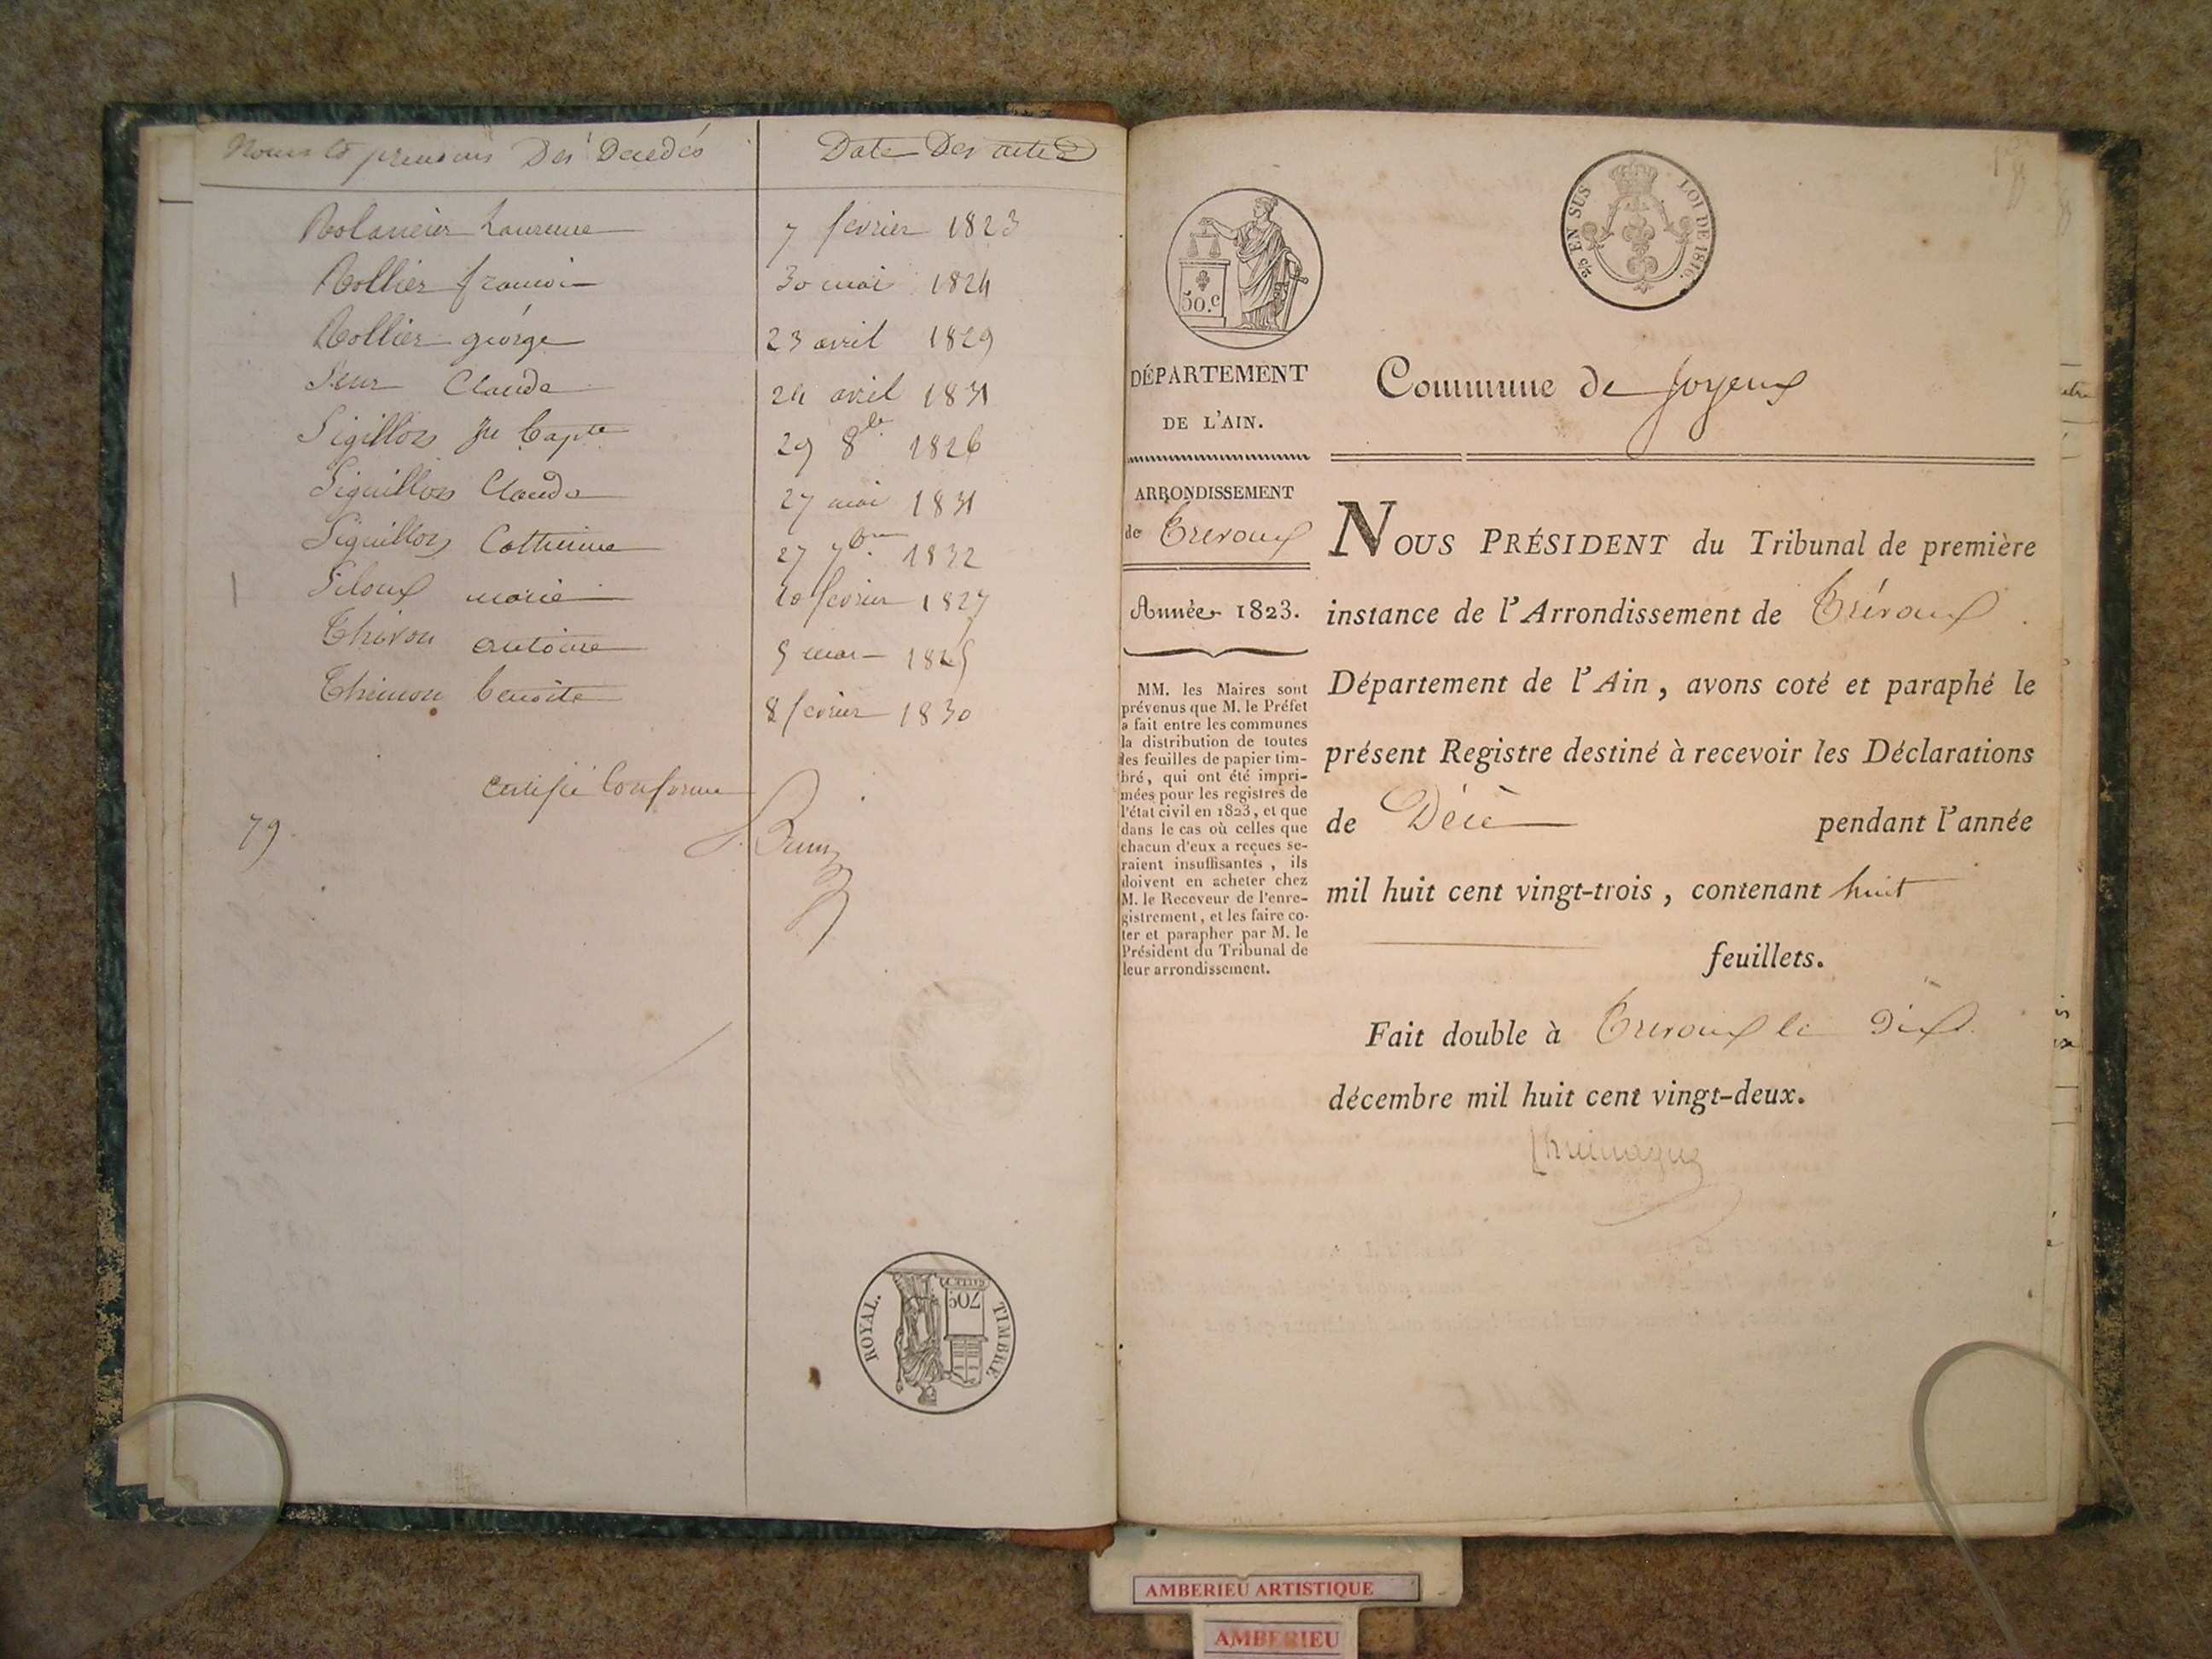 Noms et prenoms Des Décédés Date Des actes
Laurence 7 fevrier 1823
Rollier françois 30 mai 1824
Rollier géorge 23 avril 1829
Claude 24 avril 1831
Sigillon Jn Bapte 29 8bre 1826
Siguillon Claude 27 mai 1831
Siguillon Catherine 27 7bre 1832
Siloux marie 20 fevrier 1827
antoine 9 mars 1825
benoite 8 fevrier 1830
certifié Conforme
79
TIMBRE ROYAL.
70c
50.c
25 EN SUS LOI DE 1816.
DÉPARTEMENT
DE L'AIN.
Commune de Joyeux
ARRONDISSEMENT
de Trevoux
Année 1823.
MM. les Maires sont
prévenus que M. le Préfet
a fait entre les communes
la distribution de toutes
les feuilles de papier tim-
bré, qui ont été impri-
mées pour les registres de
l'état civil en 1823, et que
dans le cas où celles que
chacun d'eux a reçues se-
raient insuffisantes, ils
doivent en acheter chez
M. le Receveur de l'enre-
gistrement, et les faire co-
ter et parapher par M. le
Président du Tribunal de
leur arrondissement.
NOUS PRÉSIDENT du Tribunal de première
instance de l'Arrondissement de Trévoux
Département de l'Ain, avons coté et paraphé le
présent Registre destiné à recevoir les Déclarations
de Décès pendant l'année
mil huit cent vingt-trois, contenant huit
feuillets.
Fait double à Trevoux le dix
décembre mil huit cent vingt-deux.
AMBERIEU ARTISTIQUE
AMBERIEU